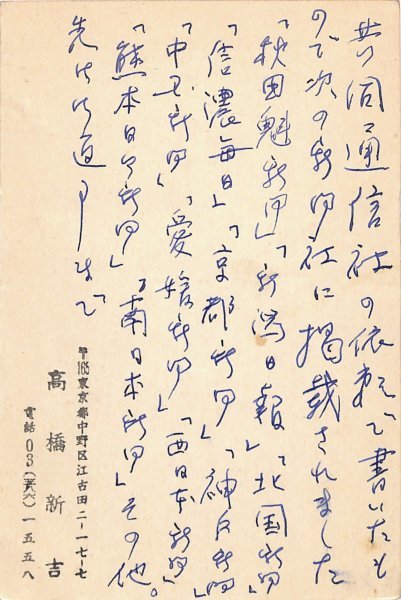 共同通信社の依頼で書いたも
ので次の新聞社に掲載されました
「秋田魁新聞」「新潟日報」「北国新聞」
「信濃毎日」「京都新聞」「神戸新聞」
「中国新聞」「愛媛新聞」「西日本新聞」
「熊本日日新聞」「南日本新聞」その他。
先は
〒165東京都中野区江古田二ー一七ー七
高橋新吉
電話03(三八六)一五五八